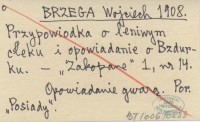 BRZEGA Wojciech 1908.
Przypowiodka o leniwym
cłeku i opowiadanie o Bzdur-
ku. — „Zakopane" 1, nr 14.
Opowiadanie gwarą. Por.
„Posiady".